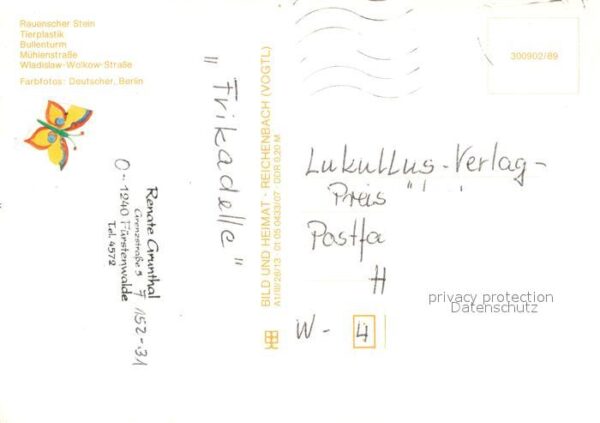 Rauenscher Stein
Tierplastik
Bullenturm
Mühlenstraße
Wladislaw-Wolkow-Straße
Farbfotos: Deutscher, Berlin
„Frikadelle"
Renate Grunthal
Grenzstraße 5
O-1240 Fürstenwalde
Tel. 4572
7 152-31
BILD UND HEIMAT · REICHENBACH (VOGTL)
A1/III/26/13 · 01 05 0433/07 · DDR 0,20 M
300902/89
Lukullus-Verlag-
Preis
Postfa
H
W-4
privacy protection
Datenschutz